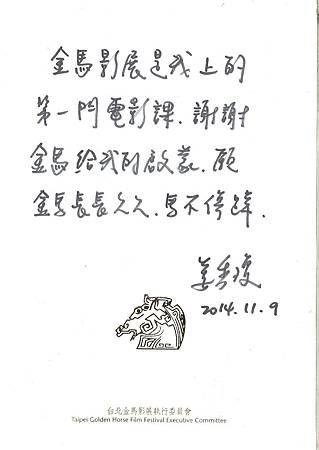 金馬影展是我上的
第一門電影課.謝謝
金馬給我的啟蒙.願
金馬長長久久.馬不停蹄.
姜秀瓊
2014.11.9
台北金馬影展執行委員會
Taipei Golden Horse Film Festival Executive Committee